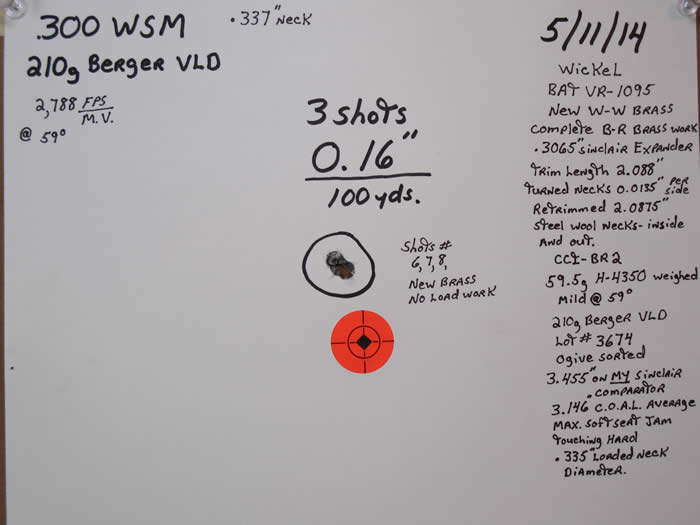 .300 WSM
.337" Neck
210g Berger VLD
2,788 FPS
M.V.
@ 59°
3 shots
0.16"
100 yds.
Shots #
6, 7, 8,
New Brass
No Load Work
5/11/14
Wickel
BAT VR-1095
New W-W Brass
Complete B-R Brass work
.3065" Sinclair Expander
Trim Length 2.088"
Turned Necks 0.0135" per side
Retrimmed 2.0875"
Steel wool Necks - inside
And out.
CCI-BR2
59.5g H-4350 weighed
Mild @ 59°
210g Berger VLD
Lot # 3674
Ogive sorted
3.455" on MY Sinclair
Comparator
3.146 C.O.A.L. Average
Max. Soft Seat Jam
touching Hard
.335" Loaded Neck
Diameter.